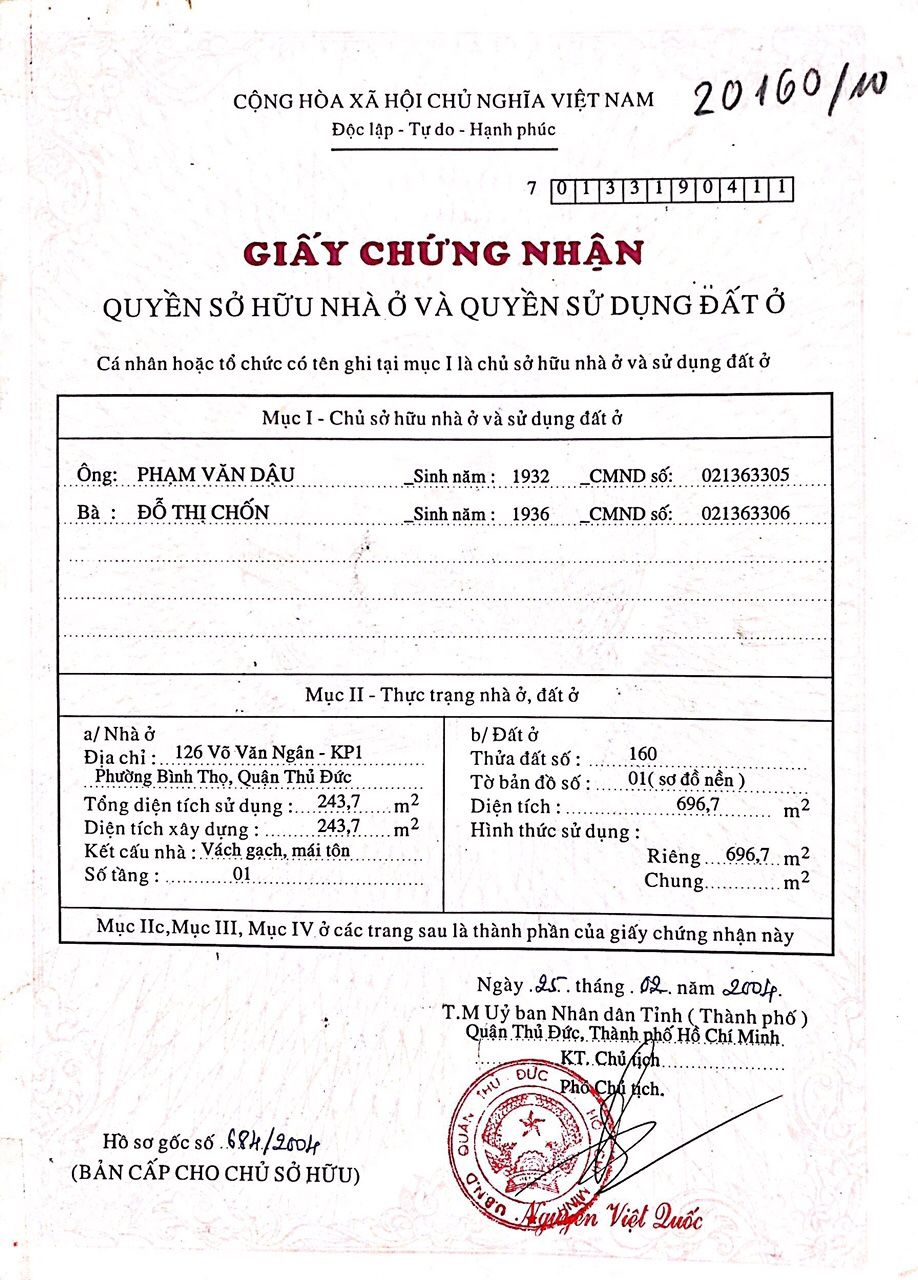 20160/10
CỘNG HÒA XÃ HỘI CHỦ NGHĨA VIỆT NAM
Độc lập - Tự do - Hạnh phúc
7 0133190411
GIẤY CHỨNG NHẬN
QUYỀN SỞ HỮU NHÀ Ở VÀ QUYỀN SỬ DỤNG ĐẤT Ở
Cá nhân hoặc tổ chức có tên ghi tại mục I là chủ sở hữu nhà ở và sử dụng đất ở
Mục I - Chủ sở hữu nhà ở và sử dụng đất ở
Ông: PHẠM VĂN DẬU _Sinh năm : 1932 _CMND số: 021363305
Bà : ĐỖ THỊ CHỐN _Sinh năm : 1936 _CMND số: 021363306
Mục II - Thực trạng nhà ở, đất ở
a/ Nhà ở
Địa chỉ : 126 Võ Văn Ngân - KP1
Phường Bình Thọ, Quận Thủ Đức
Tổng diện tích sử dụng : 243,7 m2
Diện tích xây dựng : 243,7 m2
Kết cấu nhà : Vách gạch, mái tôn
Số tầng : 01
b/ Đất ở
Thửa đất số : 160
Tờ bản đồ số : 01( sơ đồ nền )
Diện tích : 696,7 m2
Hình thức sử dụng :
Riêng 696,7 m2
Chung m2
Mục IIc,Mục III, Mục IV ở các trang sau là thành phần của giấy chứng nhận này
Ngày 25 tháng 02 năm 2004.
T.M Uỷ ban Nhân dân Tỉnh ( Thành phố )
Quận Thủ Đức, Thành phố Hồ Chí Minh
KT. Chủ tịch
Phó Chủ tịch.
UBND QUẬN THỦ ĐỨC HỒ CHÍ MINH
Nguyễn Việt Quốc
Hồ sơ gốc số 684/2004
(BẢN CẤP CHO CHỦ SỞ HỮU)